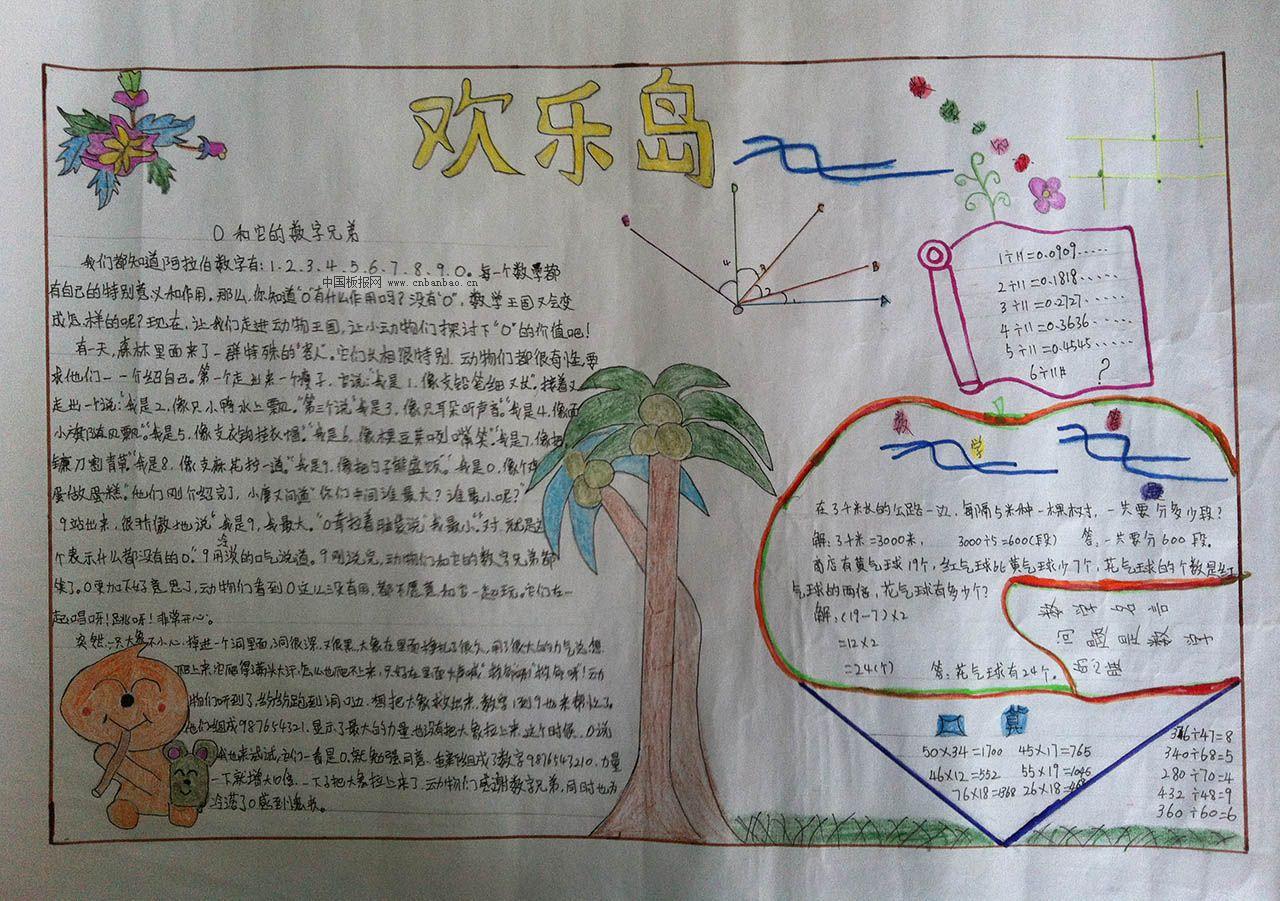 欢乐岛
0和它的数字兄弟
我们都知道阿拉伯数字有:1.2.3.4.5.6.7.8.9.0。每一个数字都
中国板报网 www.cnbanbao.cn
有自己的特别意义和作用。那么,你知道"0"有什么作用吗?没有"0",数学王国又会变
成怎样的呢?现在,让我们走进动物王国,让小动物们探讨下"0"的价值吧!
有一天,森林里面来了一群特殊的"客人"。它们长相很特别,动物们都很有
求他们一一介绍自己。第一个走出来一个瘦子,它说:"我是1,像支铅笔细又长"。接着又
走出一个说:"我是2,像只小鸭水上飘。"第三个说"我是3,像只耳朵听声音""我是4,像面
小旗随风飘。""我是5,像支衣钩挂衣帽。""我是6,像棵豆芽咧嘴笑。""我是7,像把
镰刀割青草""我是8,像支麻花拧一道。""我是9,像把勺子能盛饭。""我是0,像个鸡
蛋做蛋糕。"他们刚介绍完,小鹿又问道"你们中间谁最大?谁最小呢?"
9站出来,很骄傲地说"我是9,我最大。"0
个表示什么都没有的0。"9用 的口气说道。9刚说完,动物们和它的数字兄弟都
笑了。0更加不好意思了,动物们看到0这么没有用,都不愿意和它一起玩。它们在一
起唱呀!跳呀!非常开心。
突然,一只大象不小心,掉进一个洞里面,洞很深,又很黑,大象在里面挣扎了很久,用了很大的力气
爬上来 满头大汗,怎么也爬不上来,只好在里面大声喊"救命呀!救命呀!动
物们听到了纷纷跑到洞口边,想把大象救出来,数字1到9也来帮忙了。
他们组成987654321,显示了最大的力量也没有把大象拉上来,这个时候,0说
我也来试试,它们一看是0,就勉强同意,结果组成了数字9876543210,力量
一下就增大10倍,一下子把大象拉上来了,动物们感谢数字兄弟,同时也为
冷落了0感到
4
3
2
1
C
B
A
1÷11=0.0909.....
2÷11=0.1818......
3÷11=0.2727......
4÷11=0.3636......
5÷11=0.4545......
6÷11= ?
数 学
在3千米长的公路一边,每隔5米种一棵树,一共要分多少段?
解:3千米=3000米, 3000÷5=600(段) 答:一共要分600段。
商店有黄气球19个,红气球比黄气球少7个,花气球的个数是红
气球的两倍,花气球有多少个?
解:(19-7)×2
=12×2
=24(个) 答:花气球有24个。
数学名言
问题是数学
的心脏
口算
50×34=1700 45×17=765
46×12=552 55×19=1045
76×18=1368 26×18=468
376÷47=8
340÷68=5
280÷70=4
432÷48=9
360÷60=6